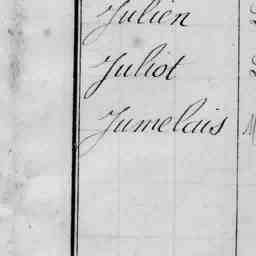 Julien
Juliot
Jumelais